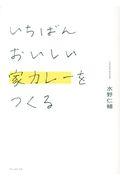 いちばん
おいしい
家カレーを
つくる
水野仁輔